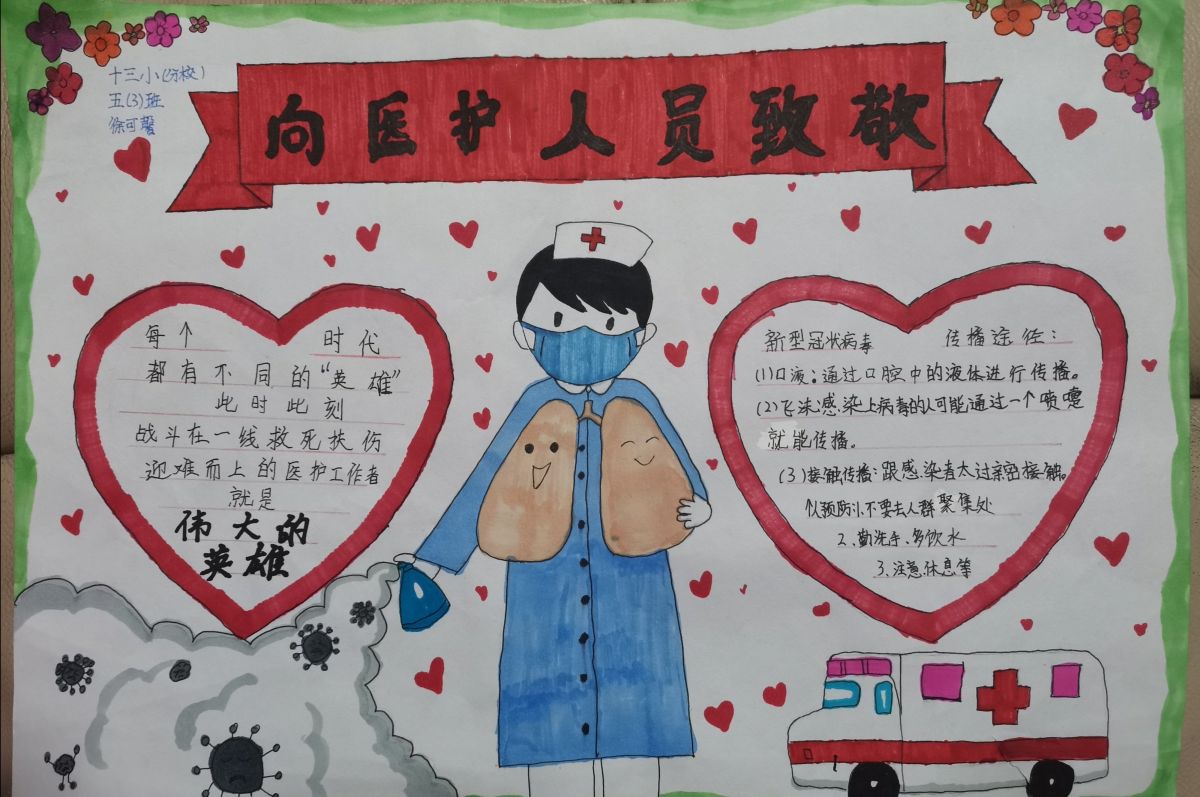 十三小(分校)
五(3)班
徐可馨
向医护人员致敬
每个 时代
都有不同的“英雄”
此时此刻
战斗在一线救死扶伤
迎难而上的医护工作者
就是
伟大的
英雄
新型冠状病毒 传播途径:
(1)口液:通过口腔中的液体进行传播。
(2)飞沫:感染上病毒的人可能通过一个喷嚏
就能传播。
(3)接触传播:跟感染者太过亲密接触。
以预防:1、不要去人群聚集处
2、勤洗手、多饮水
3、注意休息等